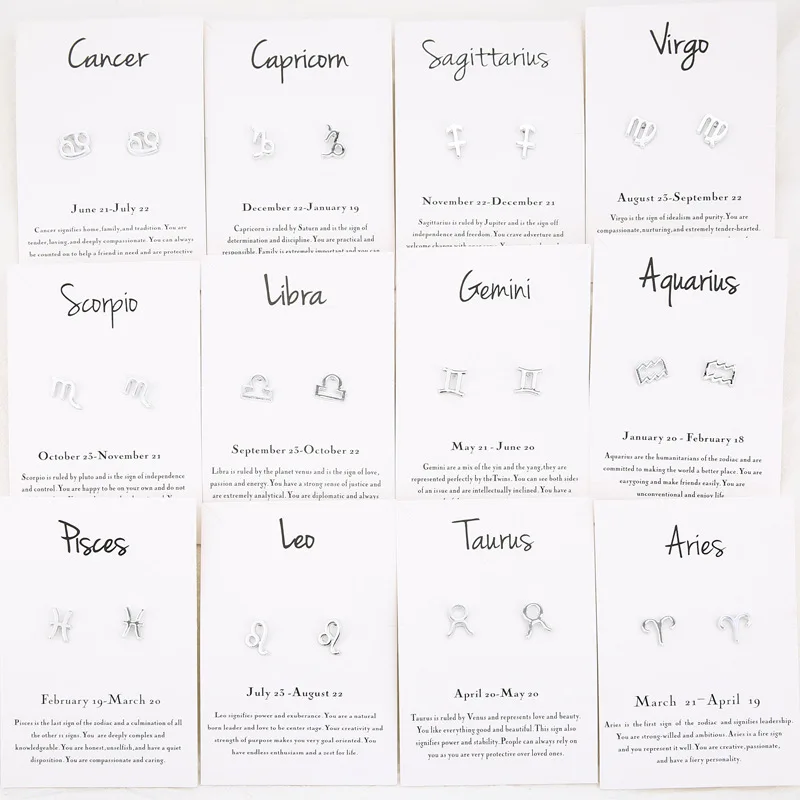 Cancer
June 21-July 22
Cancer signifies home, family, and tradition. You are
tender, loving, and deeply compassionate. You can always
be counted on to help a friend in need and are protective
Capricorn
December 22-January 19
Capricorn is ruled by Saturn and is the sign of
determination and discipline. You are practical and
responsible. Family is extremely important and you can
Sagittarius
November 22-December 21
Sagittarius is ruled by Jupiter and is the sign off
independence and freedom. You crave adventure and
welcome change with
Virgo
August 23-September 22
Virgo is the sign of idealism and purity. You are
compassionate, nurturing, and extremely tender-hearted.
Scorpio
October 23-November 21
Scorpio is ruled by pluto and is the sign of independence
and control. You are happy to be on your own and do not
Libra
September 23-October 22
Libra is ruled by the planet venus and is the sign of love,
passion and energy. You have a strong sense of justice and
are extremely analytical. You are diplomatic and always
Gemini
May 21 - June 20
Gemini are a mix of the yin and the yang, they are
represented perfectly by the Twins. You can see both sides
of an issue and are intellectually inclined. You have a
Aquarius
January 20 - February 18
Aquarius are the humanitarians of the zodiac and are
committed to making the world a better place. You are
easygoing and make friends easily. You are
unconventional and enjoy life
Pisces
February 19-March 20
Pisces is the last sign of the zodiac and a culmination of all
the other 11 signs. You are deeply complex and
knowledgeable. You are honest, unselfish, and have a quiet
disposition. You are compassionate and caring.
Leo
July 23 -August 22
Leo signifies power and exuberance. You are a natural
born leader and love to be center stage. Your creativity and
strength of purpose makes you very goal oriented. You
have endless enthusiasm and a zest for life.
Taurus
April 20-May 20
Taurus is ruled by Venus and represents love and beauty.
You like everything good and beautiful. This sign also
signifies power and stability. People can always rely on
you as you are very protective over loved ones.
Aries
March 21-April 19
Aries is the first sign of the zodiac and signifies leadership.
You are strong-willed and ambitious. Aries is a fire sign
and you represent it well. You are creative, passionate,
and have a fiery personality.